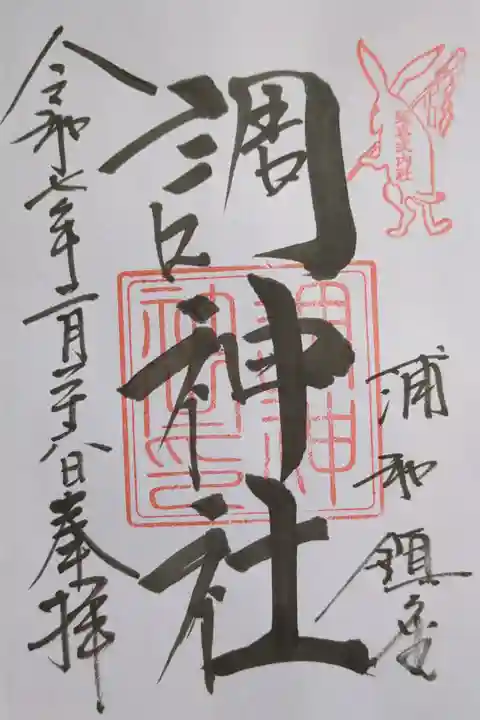 浦和鎮座
調神社
令和七年二月二十八日奉拝
調神社之印